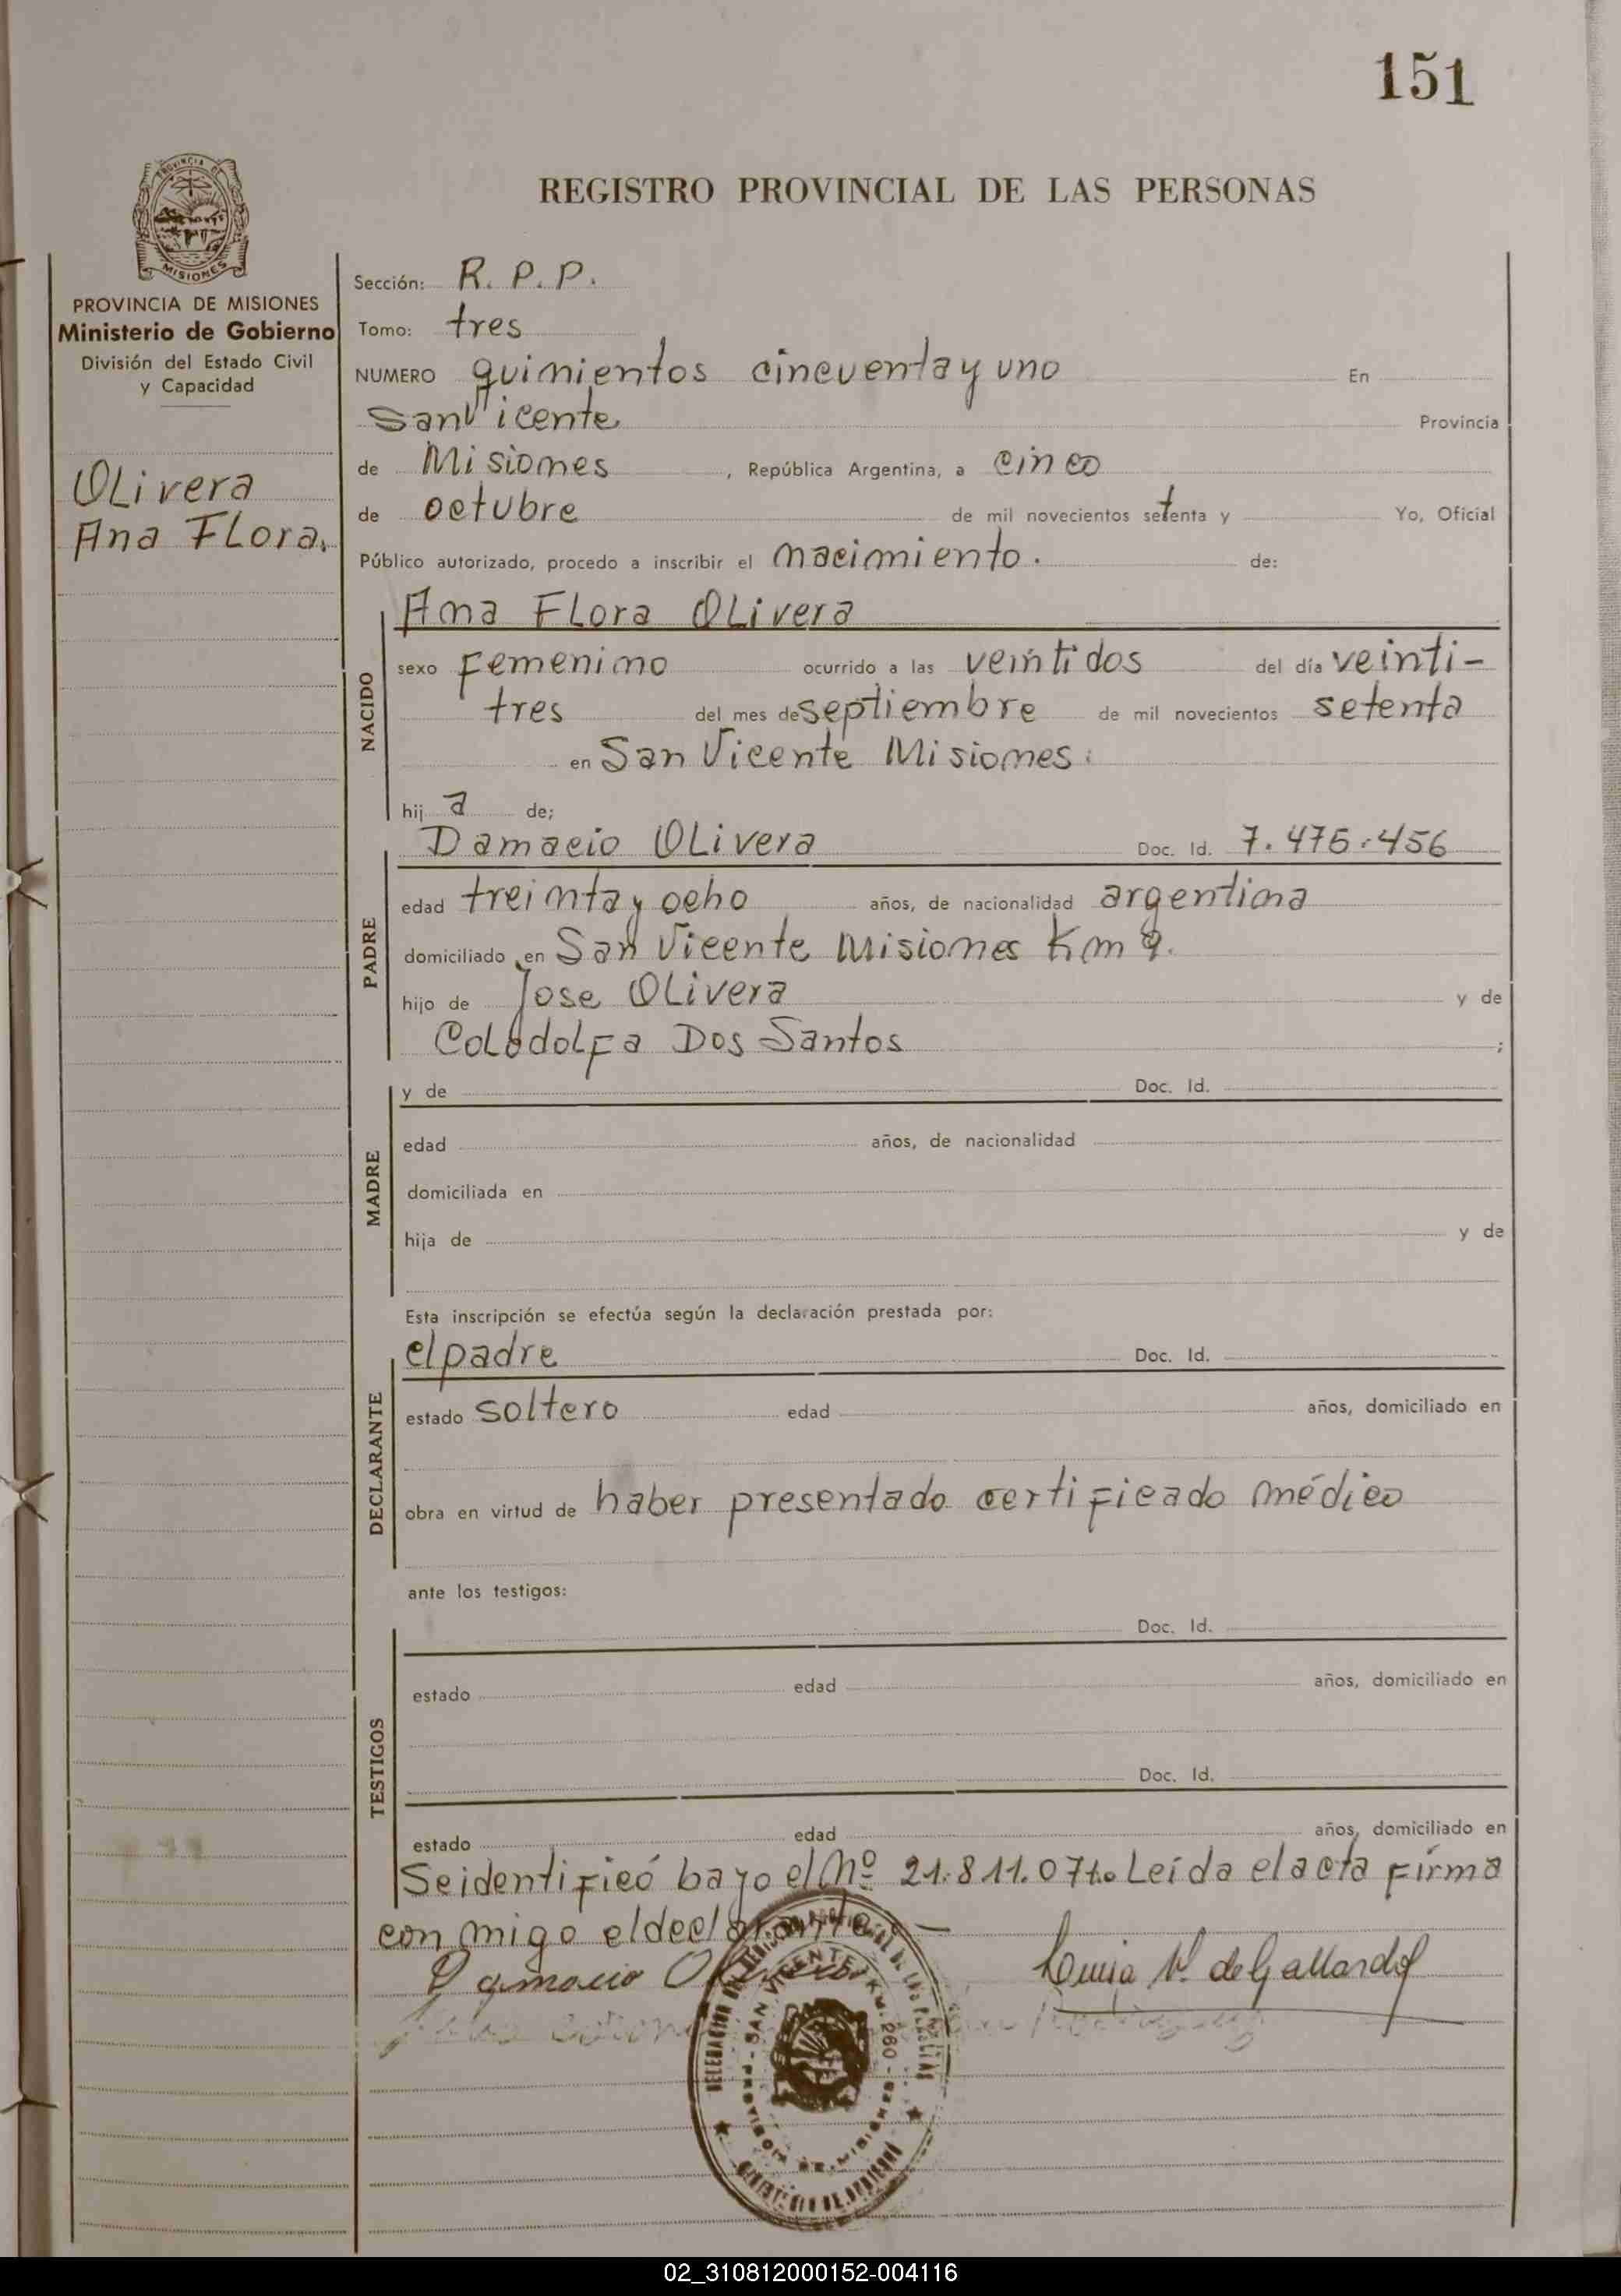 151
REGISTRO PROVINCIAL DE LAS PERSONAS
PROVINCIA DE
MISIONES
PROVINCIA DE MISIONES
Ministerio de Gobierno
División del Estado Civil
y Capacidad
Olivera
Ana Flora.
Sección: R. P. P.
Tomo: tres
NUMERO quinientos cincuenta y uno En
San Vicente Provincia
de Misiones , República Argentina, a cinco
de octubre de mil novecientos setenta y Yo, Oficial
Público autorizado, procedo a inscribir el nacimiento. de:
NACIDO
Ana Flora Olivera
sexo Femenino ocurrido a las veintidos del día veinti-
tres del mes de septiembre de mil novecientos setenta
en San Vicente Misiones.
hij a de;
PADRE
Damacio Olivera Doc. Id. 7.475.456
edad treinta y ocho años, de nacionalidad argentina
domiciliado en San Vicente Misiones Km 9.
hijo de Jose Olivera y de
Dos Santos ;
MADRE
y de Doc. Id.
edad años, de nacionalidad
domiciliada en
hija de y de
Esta inscripción se efectúa según la declaración prestada por:
DECLARANTE
el padre Doc. Id.
estado soltero edad años, domiciliado en
obra en virtud de haber presentado certificado médico
ante los testigos:
TESTIGOS
Doc. Id.
estado edad años, domiciliado en
Doc. Id.
estado edad años, domiciliado en
Se identificó bajo el Nº 21.811.071. Leída el acta firma
con migo el declarante. —
Damacio Olivera Luisa V. de Gallardo
SAN VICENTE KM. 260
02_310812000152-004116